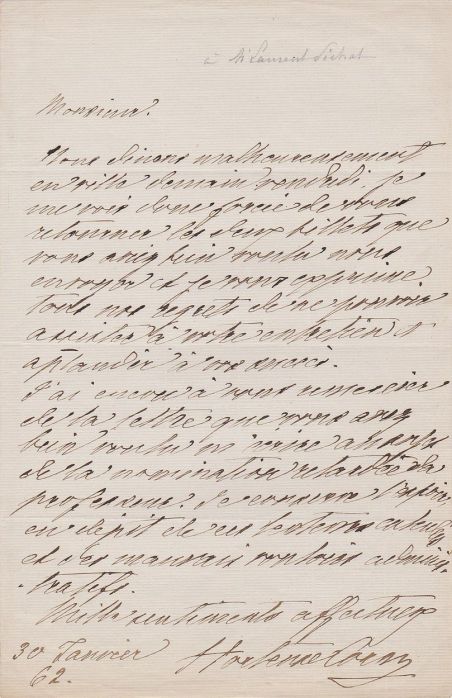 à Mr Laurent Pichat
Monsieur.
Nous dinons malheureusement
en ville demain vendredi. Je
me vois donc forcée de vous
retourner les deux billets que
vous aviez bien voulu nous
envoyer et je vous exprime
tous nos regrets de ne pouvoir
assister à votre entretien et
aplaudir à vos succès.
J'ai encore à vous remercier
de la lettre que vous avez
bien voulu m'écrire
de la nomination retardée du
professeur. Je conserve l'espoir
en dépit de ces lenteurs
et des mauvais vouloirs adminis-
-tratifs.
Mille sentiments affectueux
30 Janvier
62.
Hortense Cornu